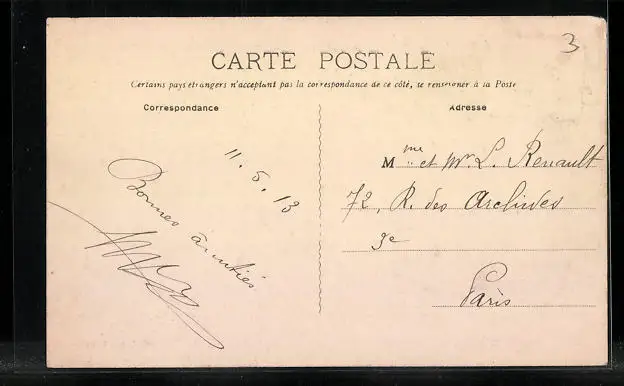 3
CARTE POSTALE
Certains pays étrangers n'acceptant pas la correspondance de ce côté, se renseigner à la Poste
Correspondance
Adresse
11. 5. 13
Bonnes amitiés
Mme et Mr L. Renault
72, R. des Archives
3e
Paris